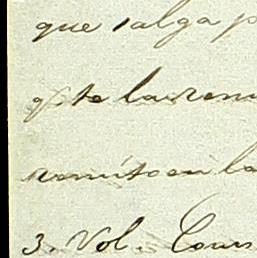 que salga p
qe. te la rem
remito en la
3. Vol. Cours